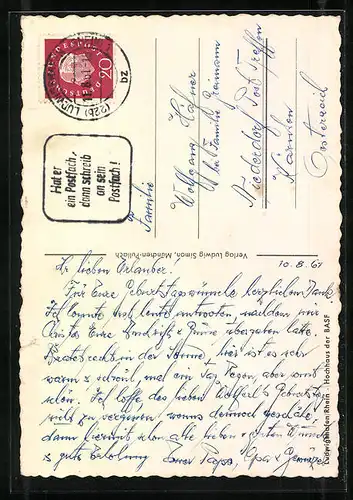 DEUTSCHE BUNDESPOST
20
(22b) LUDWIGSHAFEN
bz
Hat er
ein Postfach,
dann schreib
an sein
Postfach!
Familie
Wolfgang
bei Familie
Niederdorf Post Treffen
Kärnten
Österreich
Verlag Ludwig Simon, München-Pullach
Ludwigshafen/Rhein · Hochhaus der BASF
10.8.61
Ihr lieben Urlauber.
Für Eure Geburtstagswünsche herzlichen Dank.
Ich konnte erst heute antworten, nachdem mir
Eure Grüße übergeben hatte.
Bratet recht in der Sonne, hier ist es sehr
warm & schwül, mal ein Tag Regen, aber sonst
schön. Ich hoffe des lieben Geburtstag
nicht zu versäumen, wenns dennoch geschähe,
dann hiermit schon alle lieben & guten Wünsche
& gute Erholung Euer Papa, Opa &